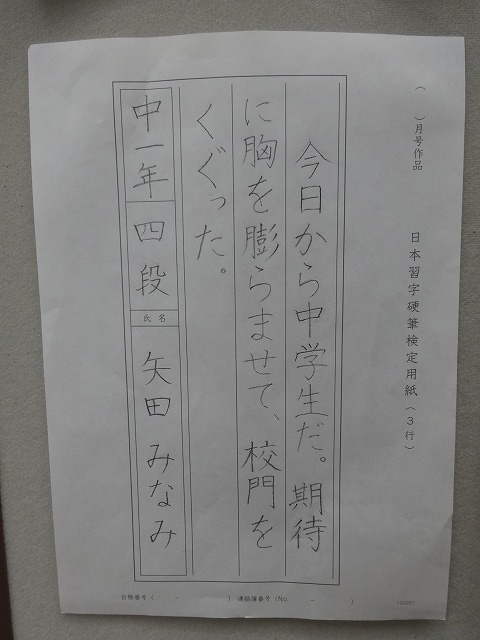 （　　）月号作品
日本習字硬筆検定用紙（３行）
今日から中学生だ。期待
に胸を膨らませて、校門を
くぐった。
中一年
四段
氏名
矢田みなみ
台帳番号（　－　）連絡簿番号（No.　－　）